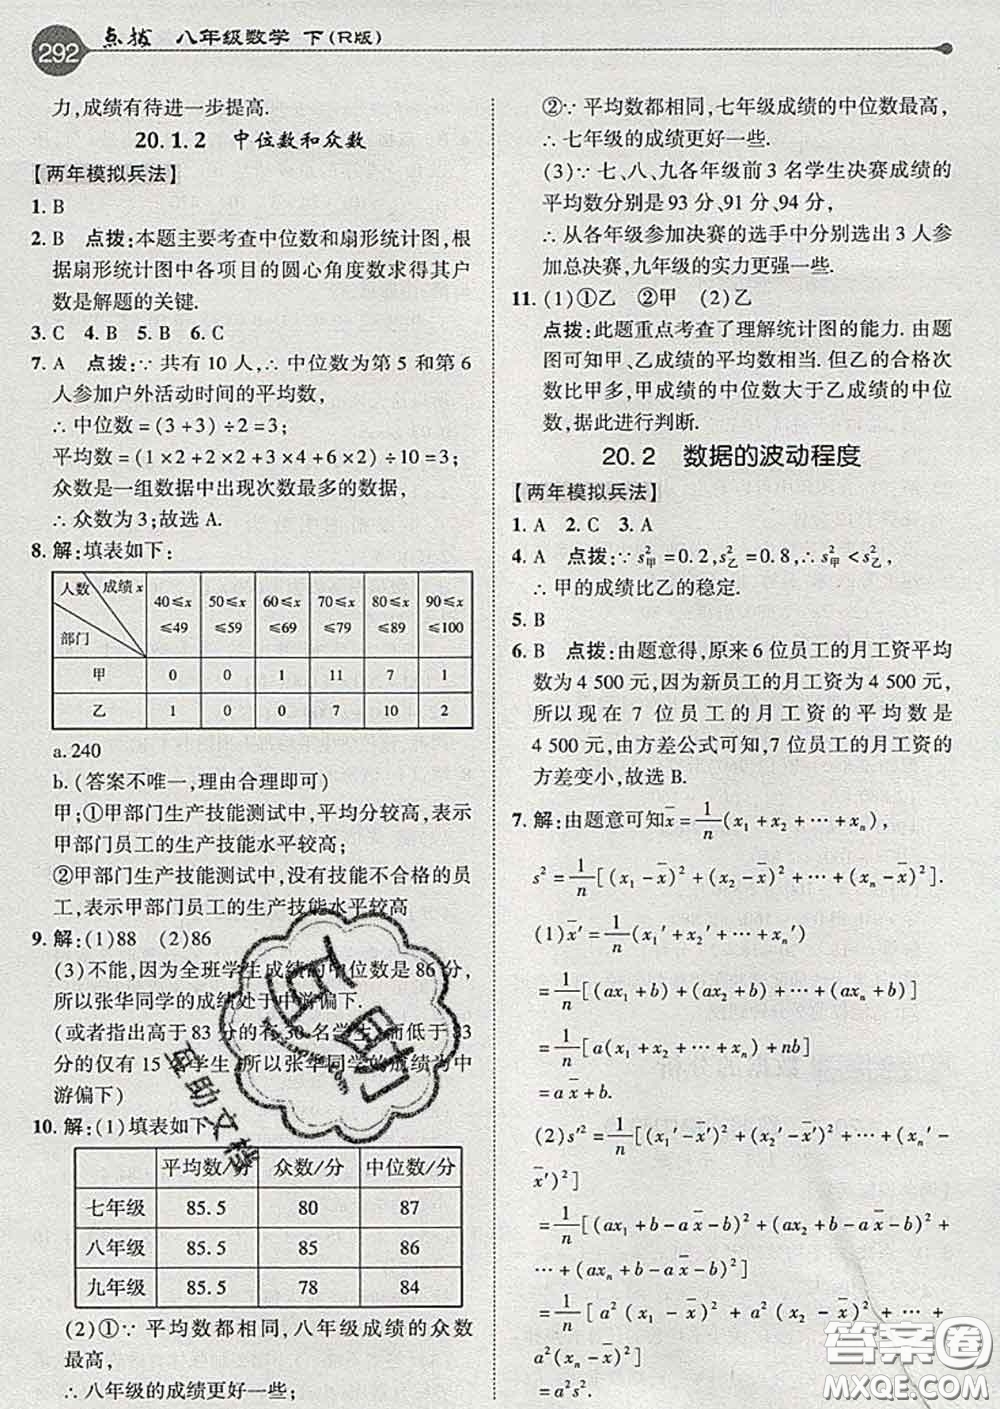 292 点拨 八年级数学 下(R版)
力,成绩有待进一步提高.
20.1.2 中位数和众数
【两年模拟兵法】
1. B
2. B 点拨:本题主要考查中位数和扇形统计图,根
据扇形统计图中各项目的圆心角度数求得其户
数是解题的关键.
3. C 4. B 5. B 6. C
7. A 点拨:∵ 共有 10 人,∴ 中位数为第 5 和第 6
人参加户外活动时间的平均数,
∴ 中位数=(3+3)÷2=3;
平均数=(1×2+2×2+3×4+6×2)÷10=3;
众数是一组数据中出现次数最多的数据,
∴ 众数为 3;故选 A.
8. 解:填表如下:
人数 成绩 x 部门 40≤x≤49 50≤x≤59 60≤x≤69 70≤x≤79 80≤x≤89 90≤x≤100
甲 0 0 1 11 7 1
乙 1 0 0 7 10 2
a. 240
b. (答案不唯一,理由合理即可)
甲;①甲部门生产技能测试中,平均分较高,表示
甲部门员工的生产技能水平较高;
②甲部门生产技能测试中,没有技能不合格的员
工,表示甲部门员工的生产技能水平较高
9. 解:(1)88 (2)86
(3)不能,因为全班学生成绩的中位数是 86 分,
所以张华同学的成绩处于中游偏下.
(或者指出高于 83 分的有 30 名学生,而低于 83
分的仅有 15 学生 所以张华同学的成绩为中
游偏下)
10. 解:(1)填表如下:
平均数/分 众数/分 中位数/分
七年级 85.5 80 87
八年级 85.5 85 86
九年级 85.5 78 84
(2)①∵ 平均数都相同,八年级成绩的众数
最高,
∴ 八年级的成绩更好一些;
②∵ 平均数都相同,七年级成绩的中位数最高,
∴ 七年级的成绩更好一些.
(3)∵ 七、八、九各年级前 3 名学生决赛成绩的
平均数分别是 93 分、91 分、94 分,
∴ 从各年级参加决赛的选手中分别选出 3 人参
加总决赛,九年级的实力更强一些.
11. (1)①乙 ②甲 (2)乙
点拨:此题重点考查了理解统计图的能力. 由题
图可知甲、乙成绩的平均数相当. 但乙的合格次
数比甲多,甲成绩的中位数大于乙成绩的中位
数,据此进行判断.
20.2 数据的波动程度
【两年模拟兵法】
1. A 2. C 3. A
4. A 点拨:∵s²甲=0.2,s²乙=0.8,∴s²甲<s²乙,
∴ 甲的成绩比乙的稳定.
5. B
6. B 点拨:由题意得,原来 6 位员工的月工资平均
数为 4 500 元,因为新员工的月工资为 4 500 元,
所以现在 7 位员工的月工资的平均数是
4 500 元,由方差公式可知,7 位员工的月工资的
方差变小,故选 B.
7. 解:由题意可知x̄=1/n(x₁+x₂+⋯+xₙ),
s²=1/n[(x₁-x̄)²+(x₂-x̄)²+⋯+(xₙ-x̄)²].
(1)x̄′=1/n(x₁′+x₂′+⋯+xₙ′)
=1/n[(ax₁+b)+(ax₂+b)+⋯+(axₙ+b)]
=1/n[a(x₁+x₂+⋯+xₙ)+nb]
=ax̄+b.
(2)s′²=1/n[(x₁′-x̄′)²+(x₂′-x̄′)²+⋯+(xₙ′-
x̄′)²]
=1/n[(ax₁+b-ax̄-b)²+(ax₂+b-ax̄-b)²+
⋯+(axₙ+b-ax̄-b)²]
=1/n[a²(x₁-x̄)²+a²(x₂-x̄)²+⋯+
a²(xₙ-x̄)²]
=a²s².
互助文档
答案圈
MXQE.COM